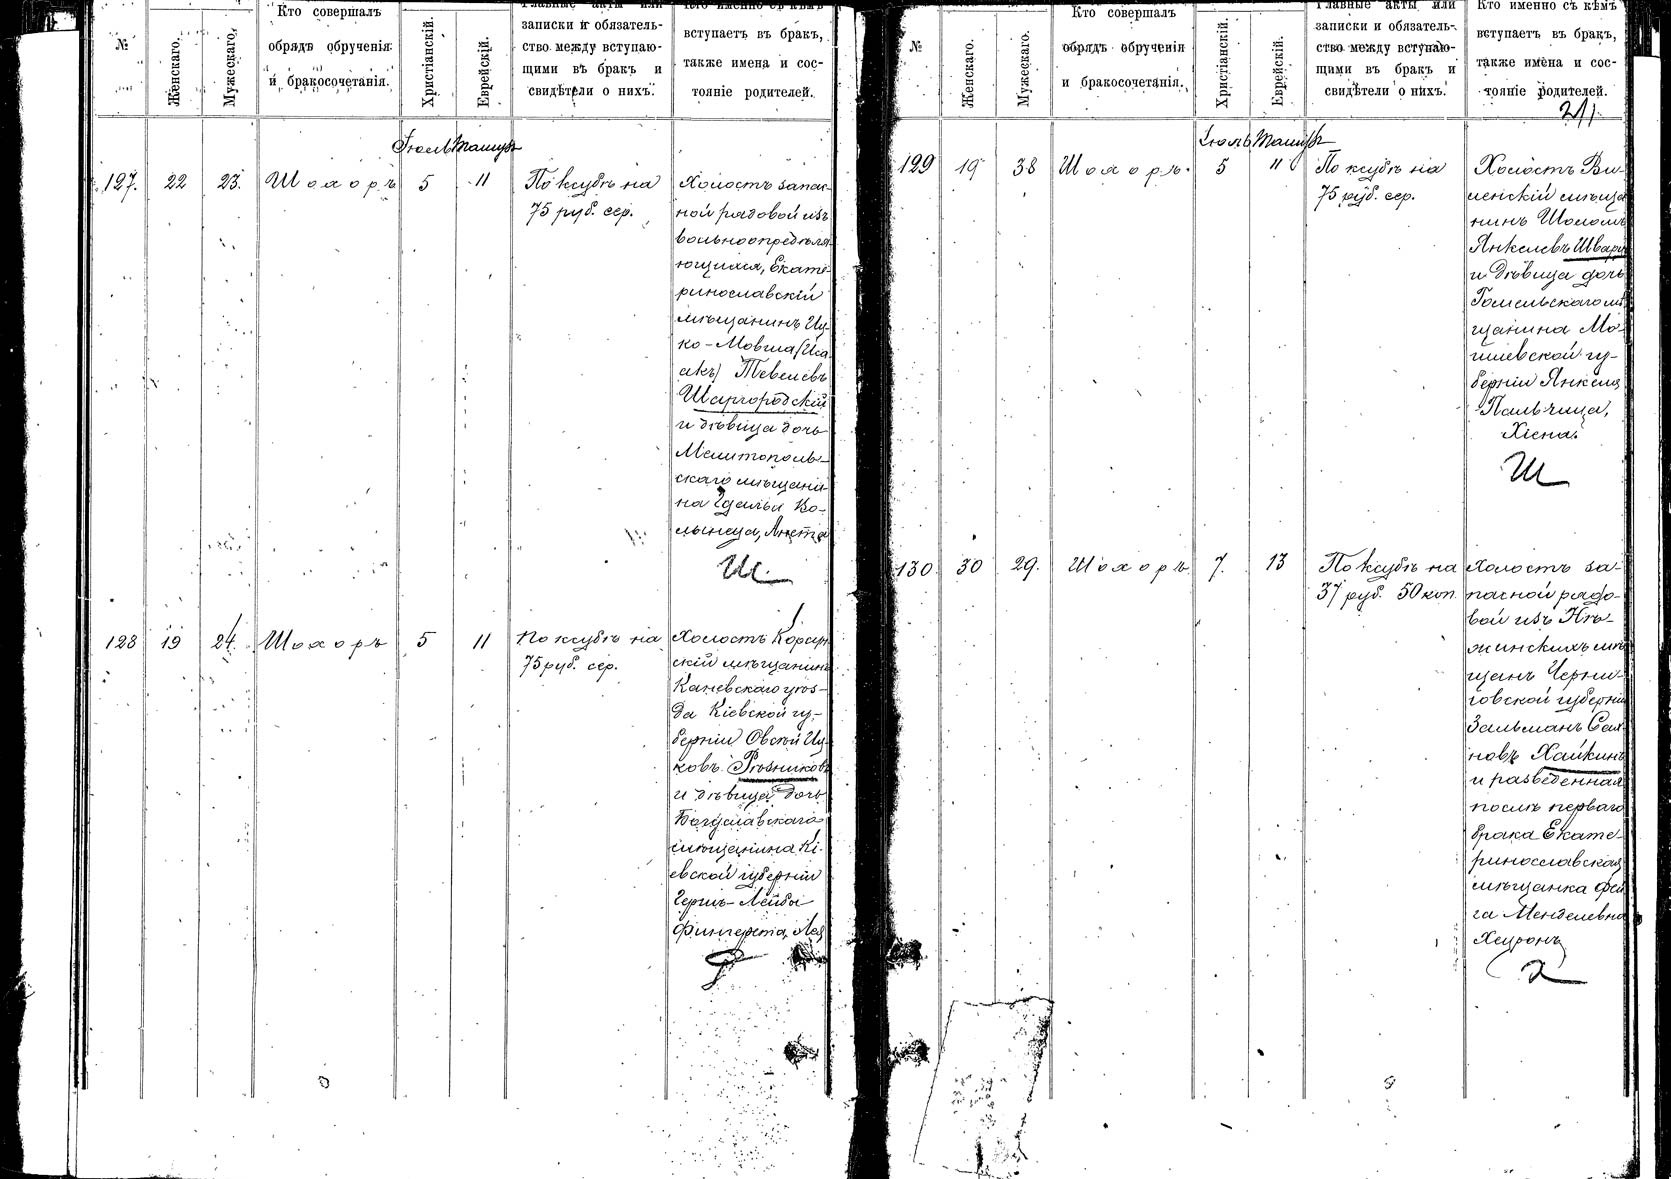 №
Женскаго.
Мужескаго.
Кто совершалъ
обрядъ обрученія
и бракосочетанія.
Христіанскій.
Еврейскій.
Главные акты или
записки и обязатель-
ство между вступаю-
щими въ бракъ и
свидѣтели о нихъ.
Кто именно съ кѣмъ
вступаетъ въ бракъ,
также имена и сос-
тояніе родителей.
Іюль Тамузъ
127. 22 23. Шохоръ 5 11
По ксубѣ на
75 руб. сер.
Холостъ запас-
ной рядовой изъ
вольноопредѣля-
ющихся, Екате-
ринославскій
мѣщанинъ Иц-
ко-Мовша (Иса
акъ) Тевелевъ
Шаргородскій
и дѣвица дочь
Мелитополь-
скаго мѣщани-
на Гдальи Ко-
Ш.
128 19 24. Шохоръ 5 11
По ксубѣ на
75 руб. сер.
Холостъ Корсун
скій мѣщанинъ
Каневскаго уѣз-
да Кіевской гу-
берніи Овсѣй Иц-
ковъ Рѣзниковъ
и дѣвица дочь
Богуславскаго
мѣщанина Кі-
евской губерніи
Гершъ-Лейбы
Лея
№
Женскаго.
Мужескаго.
Кто совершалъ
обрядъ обрученія
и бракосочетанія.
Христіанскій.
Еврейскій.
Главные акты или
записки и обязатель-
ство между вступаю-
щими въ бракъ и
свидѣтели о нихъ.
Кто именно съ кѣмъ
вступаетъ въ бракъ,
также имена и сос-
тояніе родителей.
Іюль Тамузъ
129 19 38 Шохоръ. 5 11
По ксубѣ на
75 руб. сер.
Холостъ Ви-
ленскій мѣща
нинъ Шоломъ
Янкелевъ Шварц
и дѣвица дочь
Гомельскаго мѣ
щанина Мо-
гилевской гу-
берніи Янкеля
Пальчица,
Хіена.
Ш
130 30 29. Шохоръ 7. 13
По ксубѣ на
37 руб. 50 коп.
Холостъ за-
пасной рядо-
вой изъ Нѣ-
жинскихъ мѣ
щанъ Черни-
говской губерніи
Зальманъ Сах-
новъ Хайкинъ
и разведенная
послѣ перваго
брака Екате-
ринославская
мѣщанка Фей
га Менделевна
Хейронъ
Х